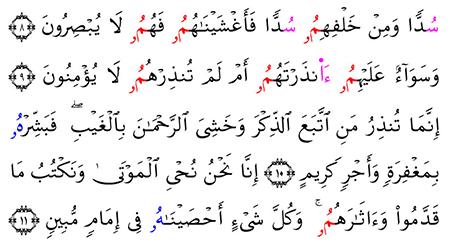 سُدًّا وَمِنْ خَلْفِهِمُۥ سُدًّا فَأَغْشَيْنَٰهُمُۥ فَهُمُۥ لَا يُبْصِرُونَ ٨
وَسَوَآءٌ عَلَيْهِمُۥ ءَا۬نذَرْتَهُمُۥ أَمْ لَمْ تُنذِرْهُمُۥ لَا يُؤْمِنُونَ ٩
إِنَّمَا تُنذِرُ مَنِ ٱتَّبَعَ ٱلذِّكْرَ وَخَشِىَ ٱلرَّحْمَٰنَ بِٱلْغَيْبِۖ فَبَشِّرْهُۥ
بِمَغْفِرَةٍ وَأَجْرٍ كَرِيمٍ ١٠ إِنَّا نَحْنُ نُحْىِ ٱلْمَوْتَىٰ وَنَكْتُبُ مَا
قَدَّمُوا۟ وَءَاثَٰرَهُمُۥۚ وَكُلَّ شَىْءٍ أَحْصَيْنَٰهُۥ فِى إِمَامٍ مُّبِينٍ ١١